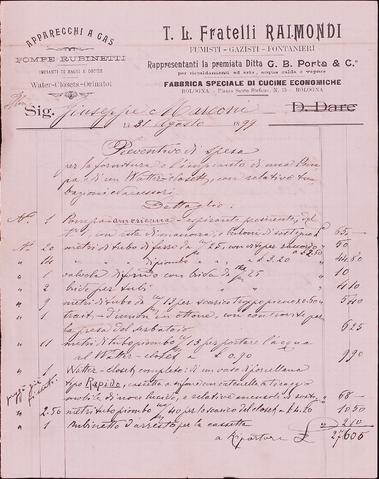 APPARECCHI A GAS
POMPE RUBINETTI
IMPIANTI DI BAGNI A DOCCIE
Water-Closets-Orinatoi
T. L. Fratelli RAIMONDI
FUMISTI - GAZISTI - FONTANIERI
Rappresentanti la premiata Ditta G. B. Porta & C.
per riscaldamenti ad aria, acqua calda e vapore
FABBRICA SPECIALE DI CUCINE ECONOMICHE
BOLOGNA - Piazza Santo Stefano, N. 15 - BOLOGNA
Sig. Giuseppe Marconi D. Dare
Li 31 Agosto 1899
Preventivo di spesa
per la fornitura e l'impianto di una Pom
pa e di un Watter-closet, con relative tu
bazioni e accessori
Dettaglio:
N. 1 Pompa americana aspirante premente, del
65 -
N. 20 metri di tubo di ferro da 25, con
50
14 di piombo a £ 3.20 44.80
1 valvola di fondo con 25 10
2 per tubi 4 10
9 metri di tubo da 13 per scarico troppo pieno 0.60 5 40
1 in ottone, con
la presa del serbatoio 6 25
11 metri di tubo piombo 13 per portare l'acqua
al Watter-closet a £ 0,90 9 90
1 Watter-closet completo: di un vaso di porcellana
tipo Rapido, cassetta a
mobile di noce lucido, e relative mensole di 68 -
2.50 metri tubo piombo 40 per lo scarico del closet a £ 4.20 10 50
1 Rubinetto d'arresto per la cassetta 2 10
a Riportare £